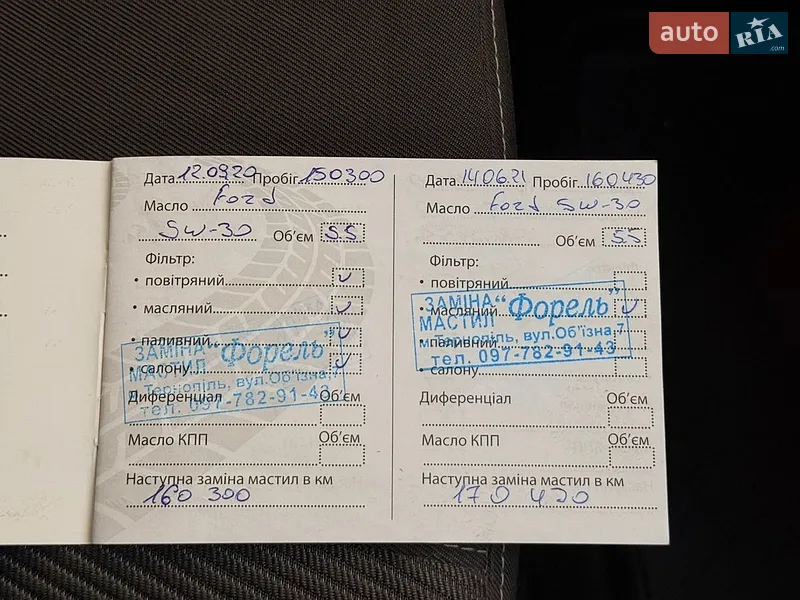 auto RIA .com
Дата 12.09.20 Пробіг 150300
Масло Ford
5W-30 Об'єм 5.5
Фільтр:
• повітряний v
• масляний v
• паливний v
• салону v
ЗАМІНА МАСТИЛ "Форель"
м.Тернопіль, вул.Об'їзна,7
тел. 097-782-91-43
Диференціал Об'єм
Масло КПП Об'єм
Наступна заміна мастил в км
160 300
Дата 14.06.21 Пробіг 160430
Масло Ford 5W-30
Об'єм 5.5
Фільтр:
• повітряний
• масляний v
• паливний
• салону
ЗАМІНА МАСТИЛ "Форель"
м.Тернопіль, вул.Об'їзна,7
тел. 097-782-91-43
Диференціал Об'єм
Масло КПП Об'єм
Наступна заміна мастил в км
170 420